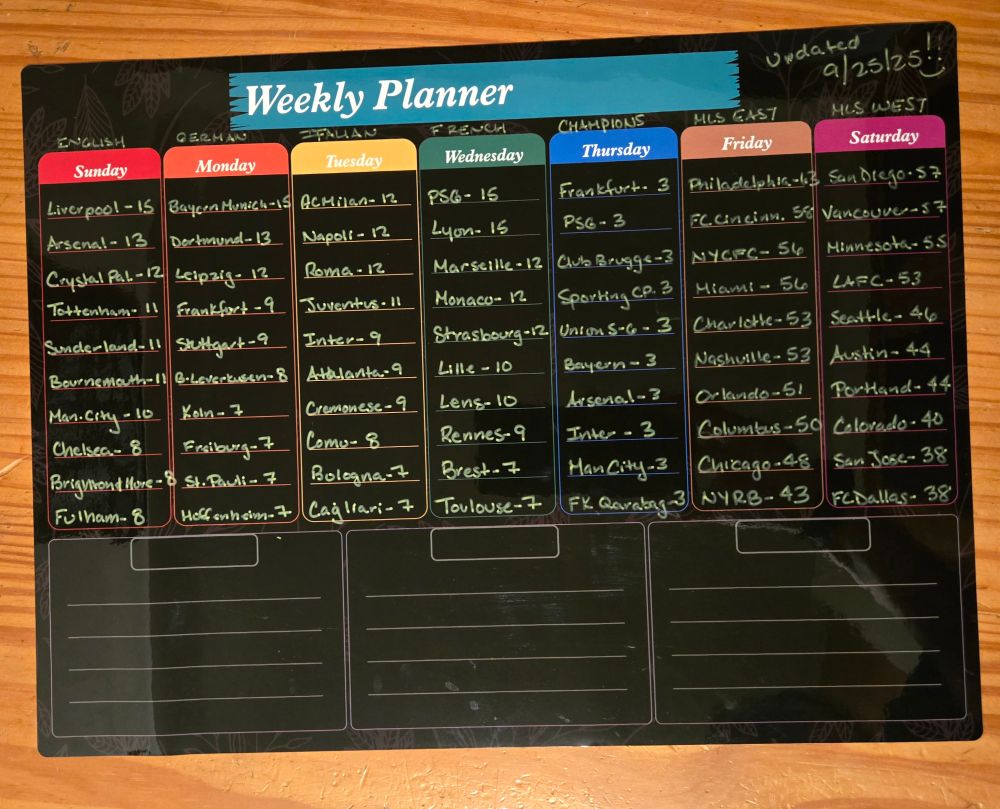 updated
9/25/25!!
Weekly Planner
ENGLISH
Sunday
Liverpool - 15
Arsenal - 13
Crystal Pal. - 12
Tottenham - 11
Sunderland - 11
Bournemouth - 11
Man. City - 10
Chelsea - 8
Brightonand Hove - 8
Fulham - 8
GERMAN
Monday
Bayern Munich - 15
Dortmund - 13
Leipzig - 12
Frankfort - 9
Stuttgart - 9
B. Leverkusen - 8
Koln - 7
Freiburg - 7
St. Pauli - 7
Hoffenheim - 7
ITALIAN
Tuesday
AC Milan - 12
Napoli - 12
Roma - 12
Juventus - 11
Inter - 9
Attalanta - 9
Cremonese - 9
Como - 8
Bologna - 7
Cagliari - 7
FRENCH
Wednesday
PSG - 15
Lyon - 15
Marseille - 12
Monaco - 12
Strasbourg - 12
Lille - 10
Lens - 10
Rennes - 9
Brest - 7
Toulouse - 7
CHAMPIONS
Thursday
Frankfurt - 3
PSG - 3
Club Brugge - 3
Sporting CP. 3
Union S-G - 3
Bayern - 3
Arsenal - 3
Inter - 3
Man City - 3
FK Qarabag - 3
MLS EAST
Friday
Philadelphia - 63
FC Cincinn. 58
NYCFC - 56
Miami - 56
Charlotte - 53
Nashville - 53
Orlando - 51
Columbus - 50
Chicago - 48
NYRB - 43
MLS WEST
Saturday
San Diego - 57
Vancouver - 57
Minnesota - 55
LAFC - 53
Seattle - 46
Austin - 44
Portland - 44
Colorado - 40
San Jose - 38
FC Dallas - 38